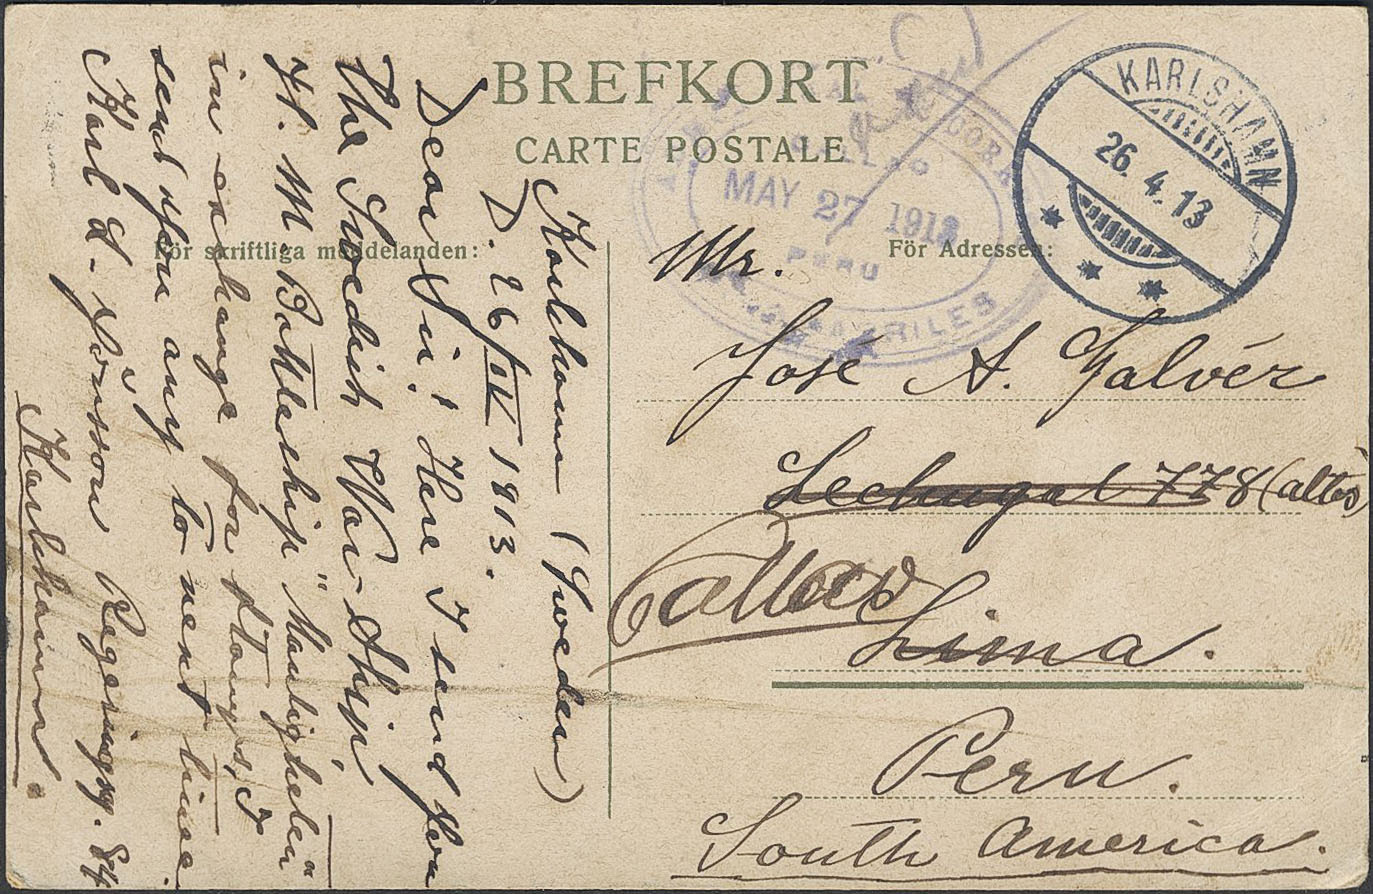 BREFKORT
CARTE POSTALE
För skriftliga meddelanden:
För Adressen:
KARLSHAMN
26.4.13
CALLAO
MAY 27 1913
PERU
Karlshamn (Sweden)
D. 26/IV 1913.
Dear Sir! Here I send You
the Swedish War-Ship,
H. M. Battleship "Manligheten"
in exchange for stamps, I
send You any to next time
Karl L. Jönsson Regeringsg. 84
Karlshamn.
Mr.
José A. Galvér
Lechugal 778 (altos)
Callao
Lima.
Peru.
South America.